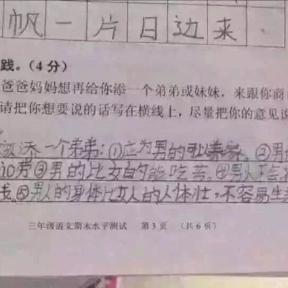 帆一片日边来
践。(4分)
爸爸妈妈想再给你添一个弟弟或妹妹，来跟你商
请把你想要说的话写在横线上，尽量把你的意见说
添一个弟弟：①应为男的
③男的比女的能吃苦。④男人不会
⑤男人的身体比女人的人体壮，不容易生
三年级语文期末水平测试 第3页 (共6页)